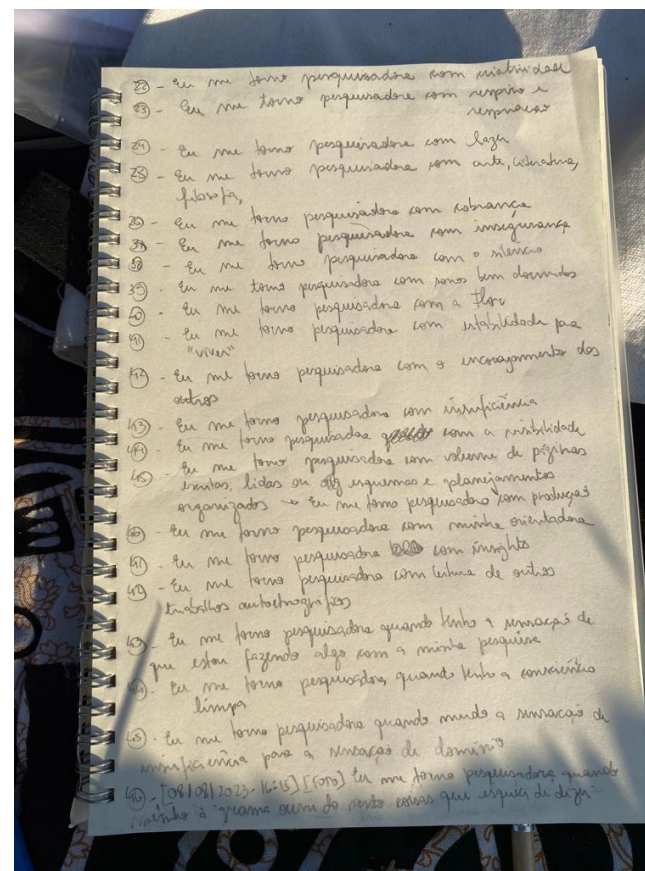 32 - Eu me torno pesquisadora com criatividade
33 - Eu me torno pesquisadora com respiro e
respiração
34 - Eu me torno pesquisadora com lazer
35 - Eu me torno pesquisadora com arte, literatura,
filosofia,
36 - Eu me torno pesquisadora com cobrança
37 - Eu me torno pesquisadora com insegurança
38 - Eu me torno pesquisadora com o silêncio
39 - Eu me torno pesquisadora com sonos bem dormidos
40 - Eu me torno pesquisadora com a Flor
41 - Eu me torno pesquisadora com estabilidade para
"viver"
42 - Eu me torno pesquisadora com o encorajamento dos
outros
43 - Eu me torno pesquisadora com insuficiência
44 - Eu me torno pesquisadora com a visibilidade
45 - Eu me torno pesquisadora com volume de páginas
escritas, lidas ou esquemas e planejamentos
organizados → Eu me torno pesquisadora com produção
- Eu me torno pesquisadora com minha orientadora
41 - Eu me torno pesquisadora com insights
42 - Eu me torno pesquisadora com leitura de outros
trabalhos autoetnográficos
43 - Eu me torno pesquisadora quando tenho a sensação de
que estou fazendo algo com a minha pesquisa
44 - Eu me torno pesquisadora, quando tenho a consciência
limpa
45 - Eu me torno pesquisadora quando mudo a sensação de
insuficiência para a sensação de domínio
46 - [08/08/2023 - 16:15] [Foto] Eu me torno pesquisadora quando
à "grama ouvi do vento coisas que esqueci de dizer"